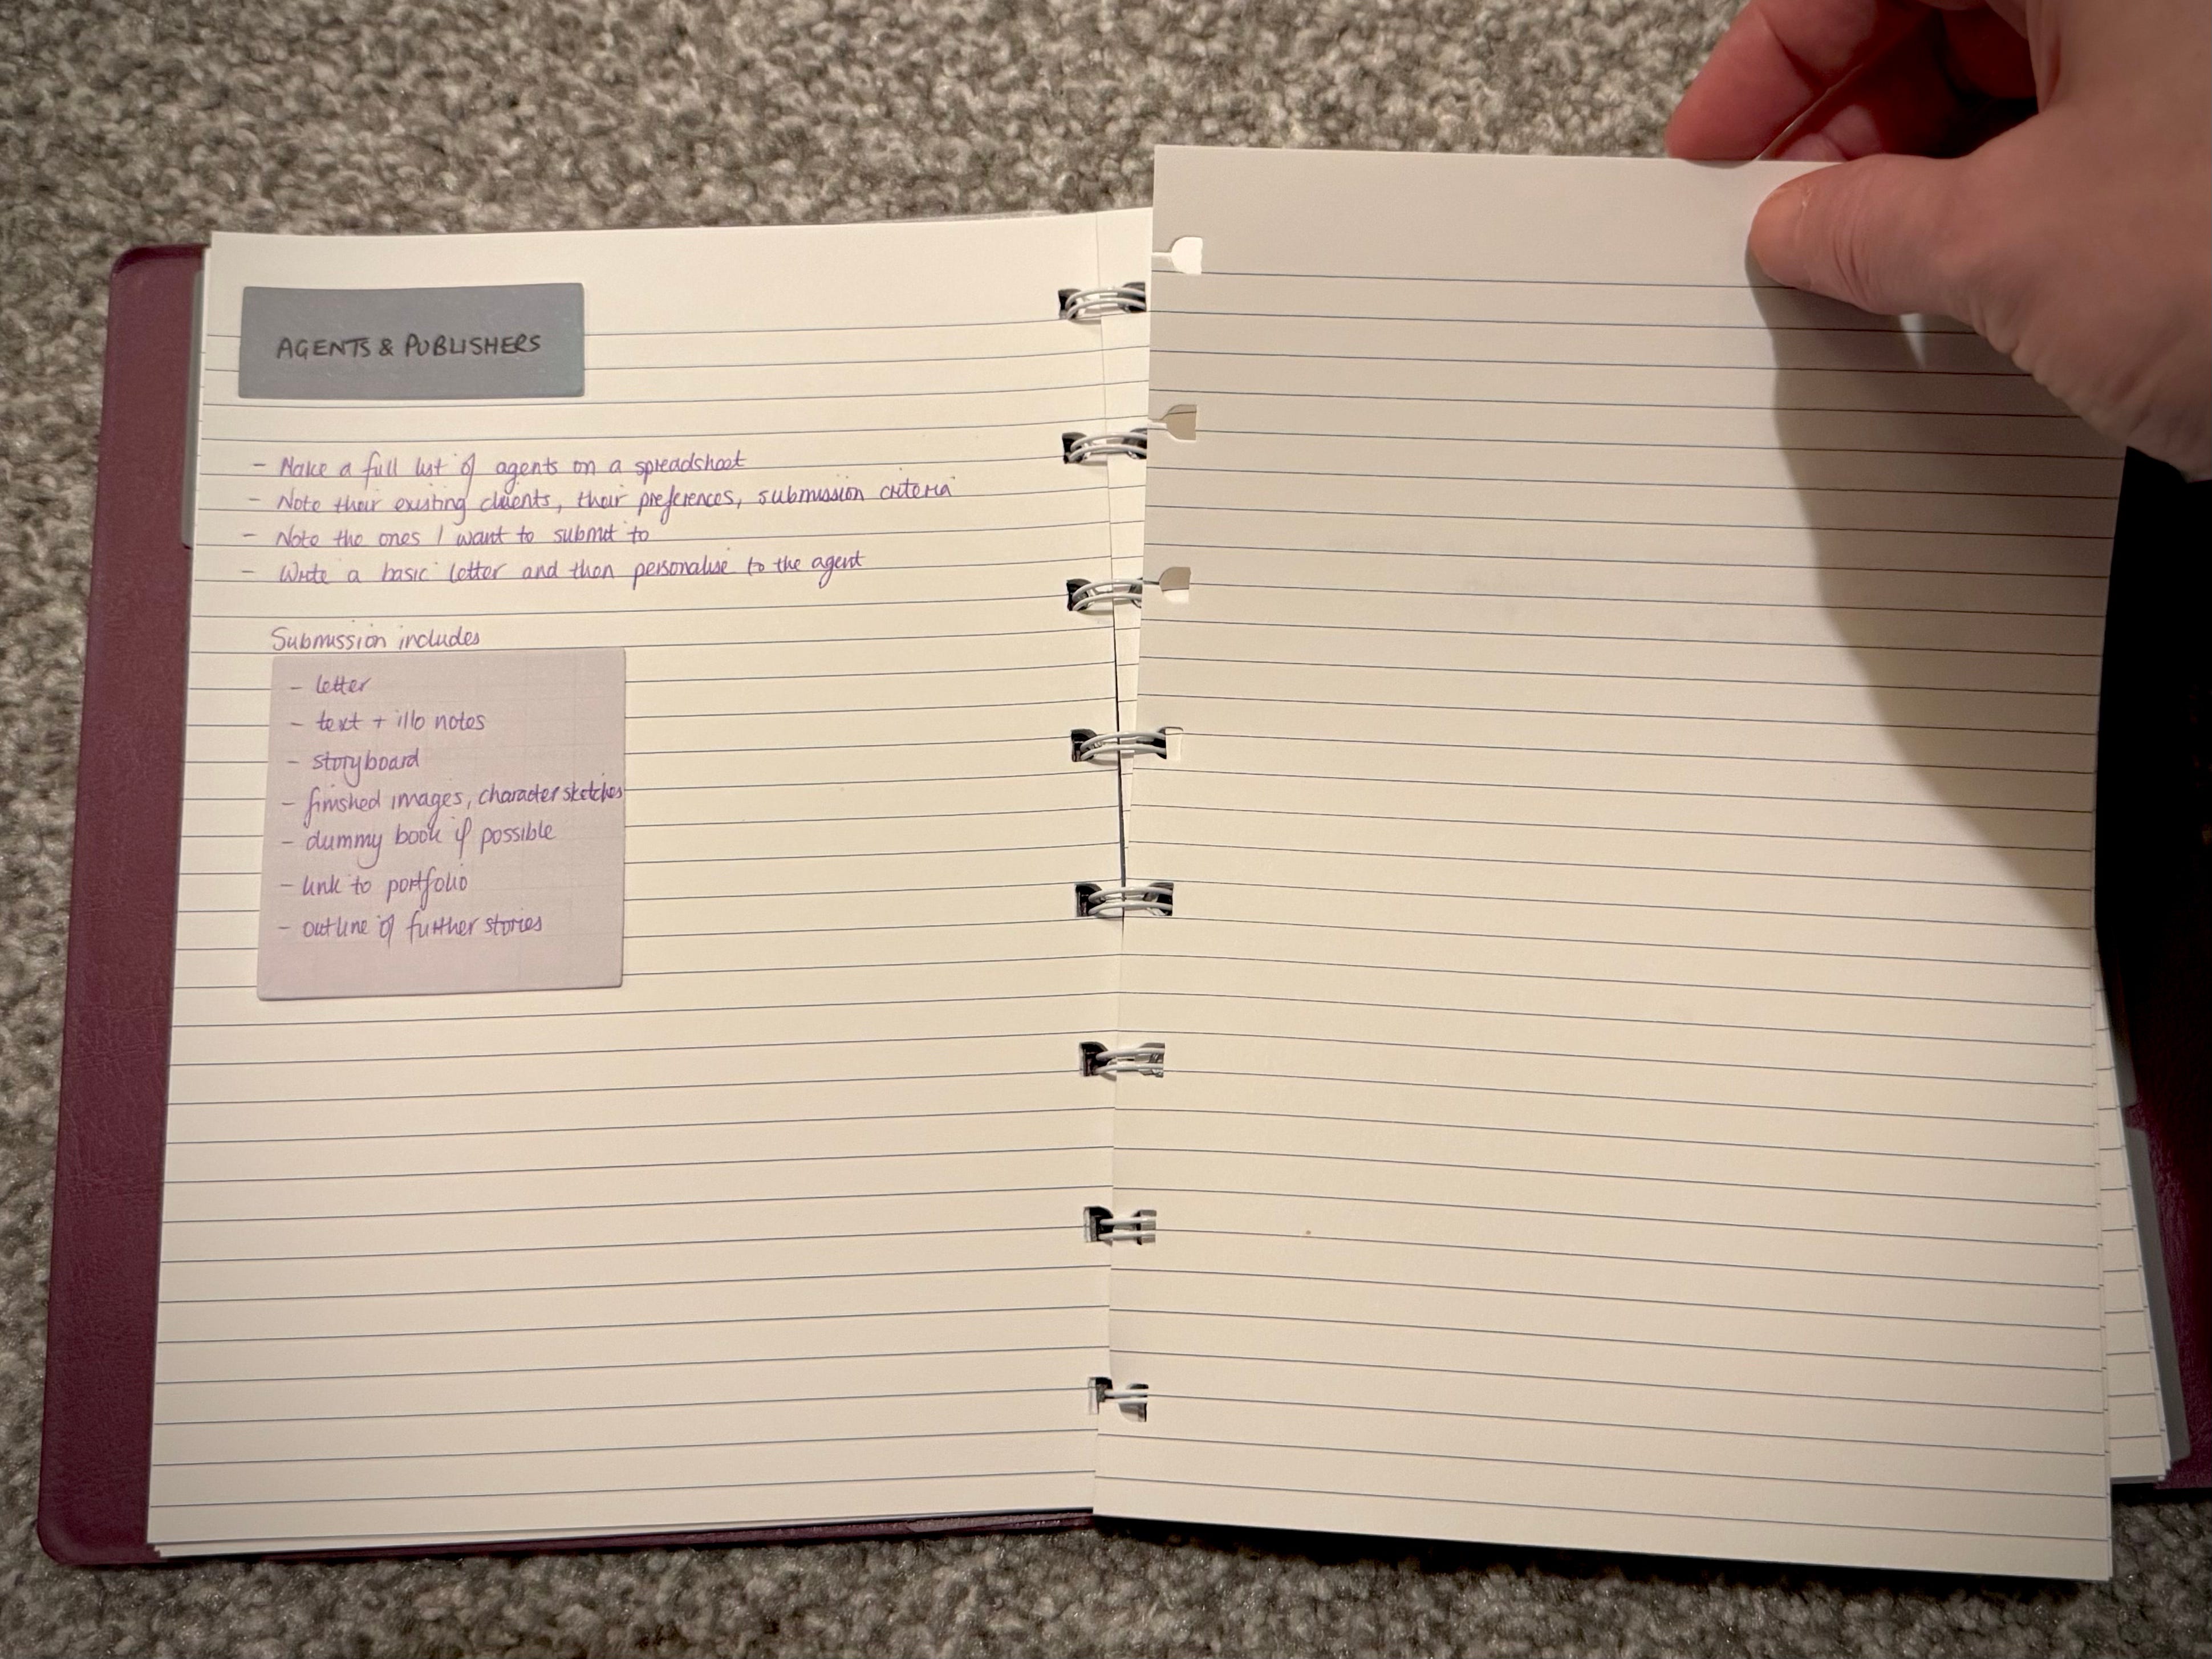 AGENTS & PUBLISHERS
- Make a full list of agents on a spreadsheet
- Note their existing clients, their preferences, submission criteria
- Note the ones I want to submit to
- Write a basic letter and then personalise to the agent
Submission includes
- letter
- text + illo notes
- storyboard
- finished images, character sketches
- dummy book if possible
- link to portfolio
- outline of further stories